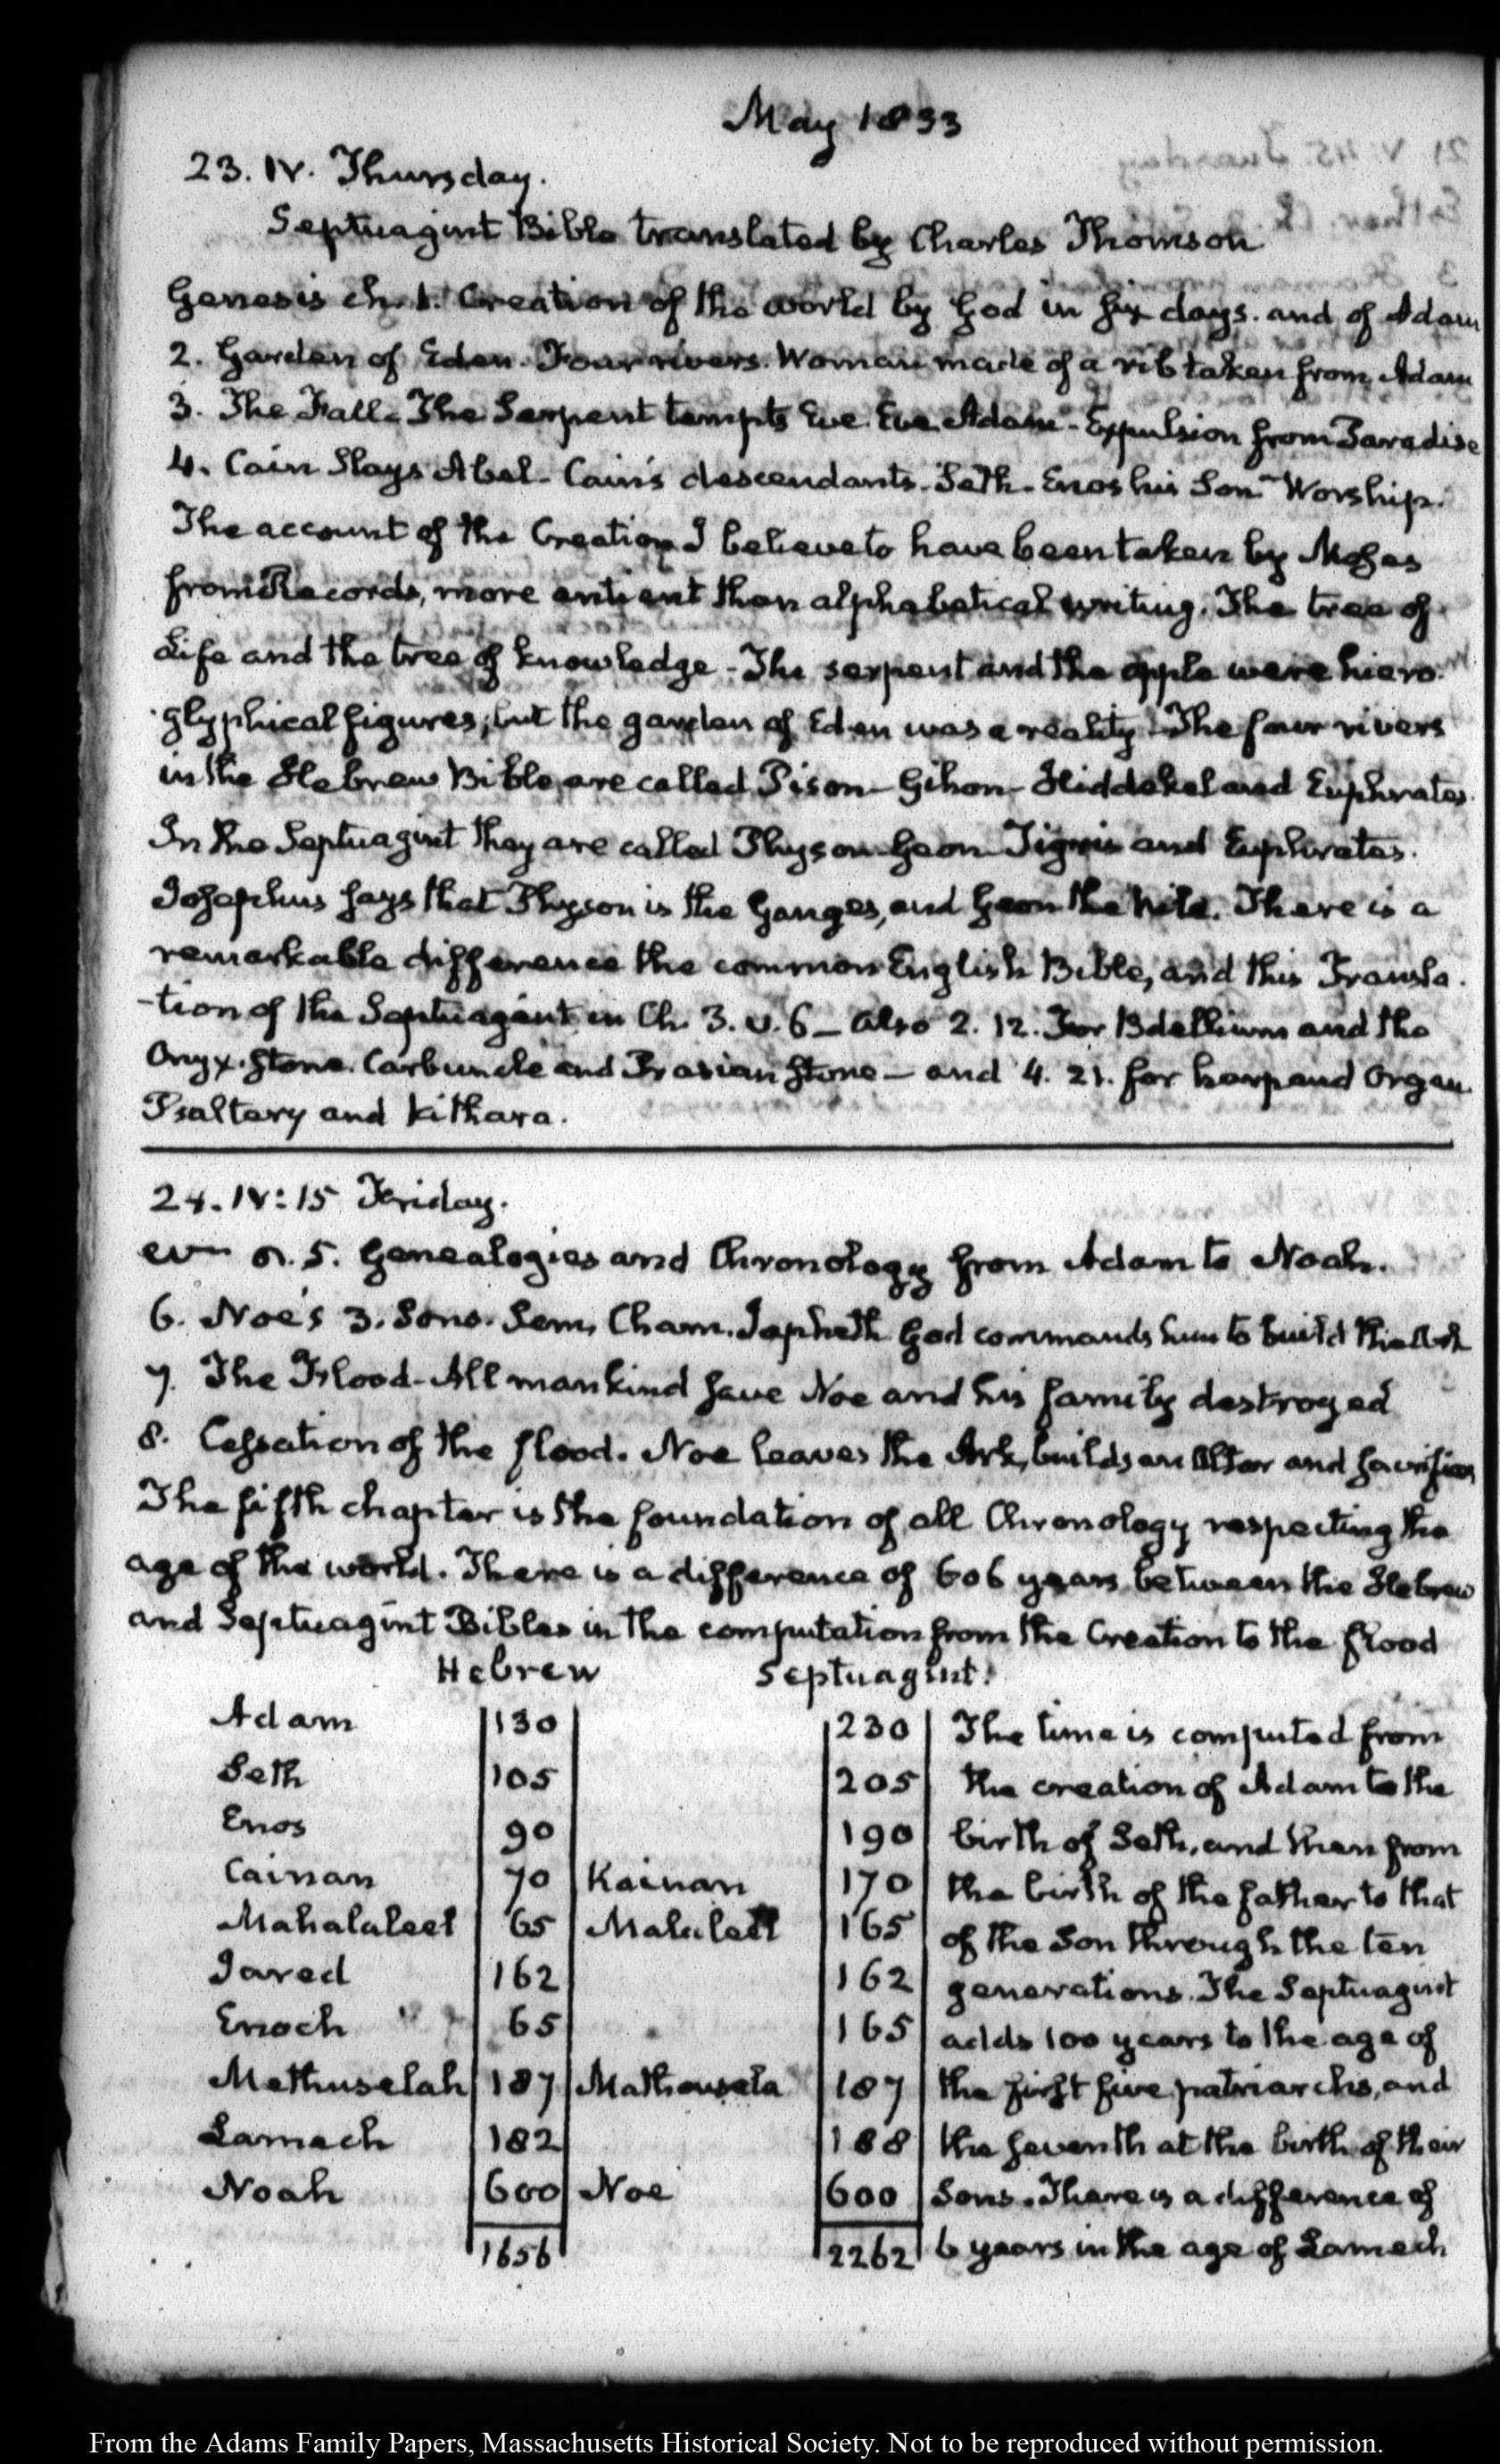 May 1833
23. IV. Thursday.
Septuagint Bible translated by Charles Thomson
Genesis ch. 1. Creation of the world by God in six days. and of Adam
2. Garden of Eden. Four rivers. Woman made of a rib taken from Adam
3. The Fall. The Serpent tempts Eve. Eve, Adam - Expulsion from Paradise
4. Cain Slays Abel - Cain's descendants. Seth - Enos his Son - Worship.
The account of the Creation I believe to have been taken by Moses
from Records, more antient than alphabetical writing. The tree of
Life and the tree of knowledge - The serpent and the apple were hiero-
glyphical figures; but the garden of Eden was a reality - The four rivers
in the Hebrew Bible are called Pison - Gihon - Hiddekel and Euphrates.
In the Septuagint they are called Physon Geon Tigris and Euphrates.
Josephus says that Physon is the Ganges, and Geon the Nile. There is a
remarkable difference the common English Bible, and this Transla-
-tion of the Septuagint in Ch. 3. v. 6 - also 2. 12. For Bdellium and the
Onyx-stone. Carbuncle and Prasian stone - and 4. 21. for harp and Organ.
Psaltery and Kithara.
24. IV:15 Friday.
5. Genealogies and Chronology from Adam to Noah.
6. Noe's 3. Sons. Sem, Cham. Japheth God commands him to build the Ark
7. The Flood - All mankind save Noe and his family destroyed
8. Cessation of the flood. Noe leaves the Ark, builds an Altar and sacrifices
The fifth chapter is the foundation of all Chronology respecting the
age of the world. There is a difference of 606 years between the Hebrew
and Septuagint Bibles in the computation from the Creation to the flood
Hebrew Septuagint.
Adam 130 230 The time is computed from
Seth 105 205 the creation of Adam to the
Enos 90 190 birth of Seth, and then from
Cainan 70 Kainan 170 the birth of the father to that
Mahalaleel 65 Malaleel 165 of the Son through the ten
Jared 162 162 generations. The Septuagint
Enoch 65 165 adds 100 years to the age of
Methuselah 187 Mathousela 187 the first five patriarchs, and
Lamech 182 188 the seventh at the birth of their
Noah 600 Noe 600 Sons. There is a difference of
1656 2262 6 years in the age of Lamech
From the Adams Family Papers, Massachusetts Historical Society. Not to be reproduced without permission.